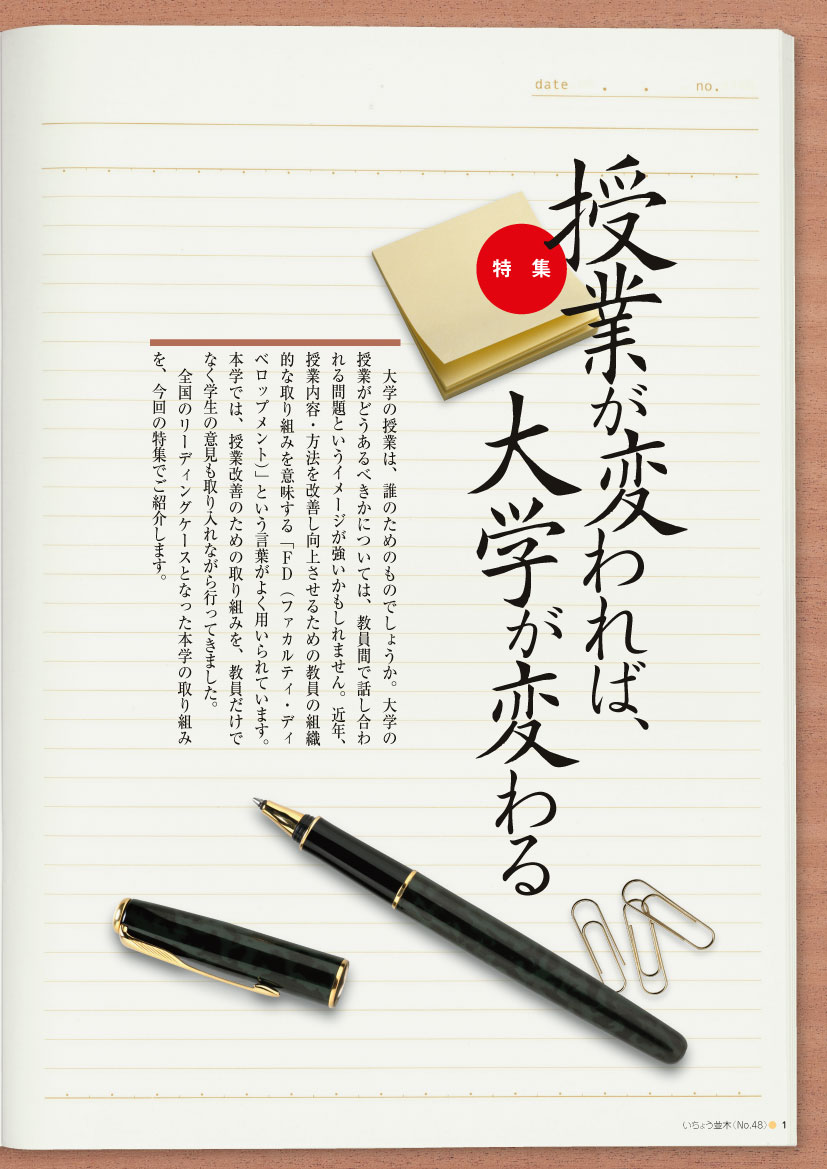 date . . no.
特集
授業が変われば、
大学が変わる
大学の授業は、誰のためのものでしょうか。大学の
授業がどうあるべきかについては、教員間で話し合わ
れる問題というイメージが強いかもしれません。近年、
授業内容・方法を改善し向上させるための教員の組織
的な取り組みを意味する「FD(ファカルティ・ディ
ベロップメント)」という言葉がよく用いられています。
本学では、授業改善のための取り組みを、教員だけで
なく学生の意見も取り入れながら行ってきました。
全国のリーディングケースとなった本学の取り組み
を、今回の特集でご紹介します。
いちょう並木〈No.48〉● 1